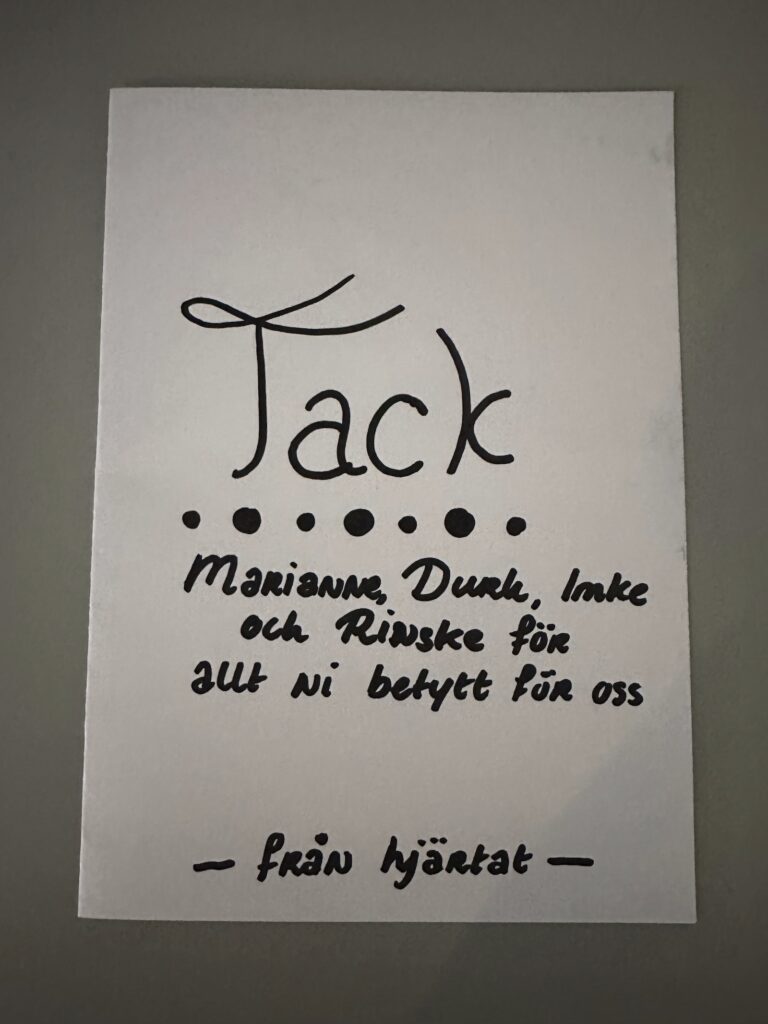 Tack
Marianne, Durk, Imke
och Rinske för
allt ni betytt för oss
— från hjärtat —